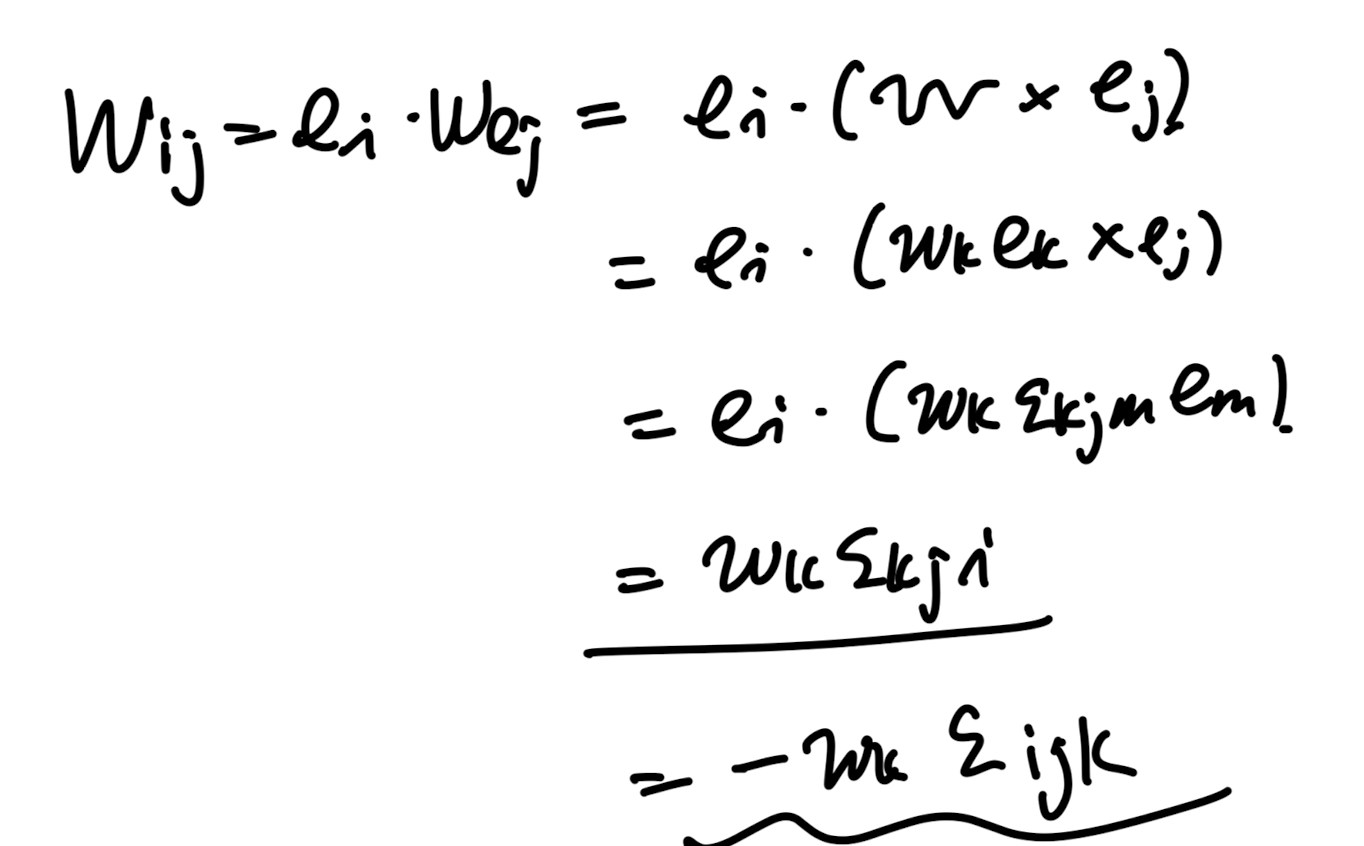 Wij = ei · Wej = ei · (w × ej)
= ei · (wk ek × ej)
= ei · (wk Ɛkjm em)
= wk Ɛkji
= - wk Ɛijk